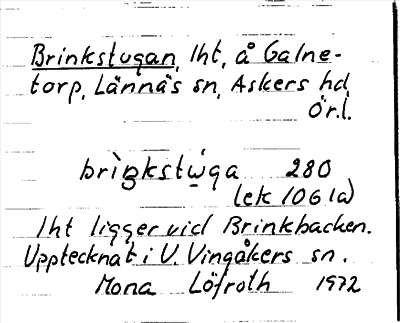 Brinkstugan, lht, å Galne-
torp, Lännäs sn, Askers hd,
Ör.l.
brìŋkstụ́ga 280
lek 106 (a)
lht ligger vid Brinkbacken.
Upptecknat i V. Vingåkers sn.
Mona Löfroth 1972